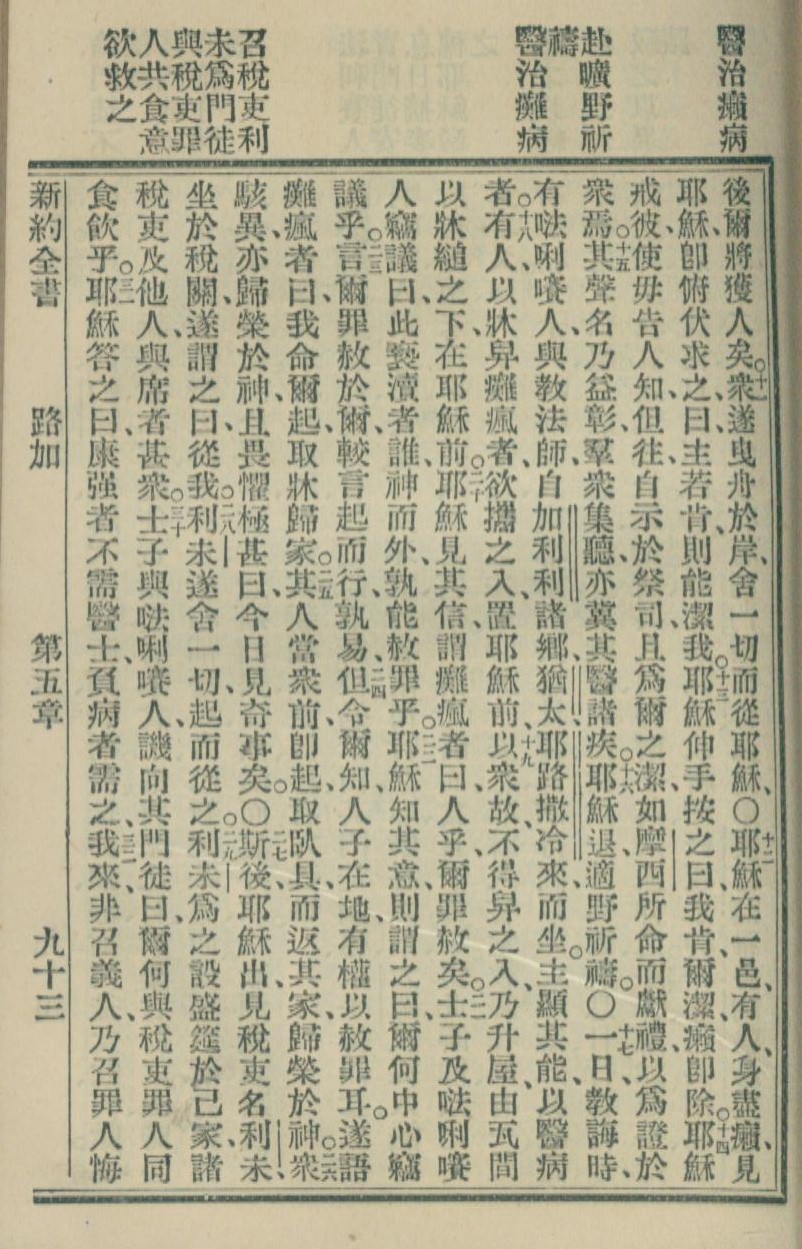 醫治癩病
赴曠野祈
禱
醫治癱病
召稅吏利
未爲門徒
與稅吏罪
人共食意
欲救之
後爾將獲人矣。十一衆遂曳舟於岸、舍一切而從耶穌、〇十二耶穌在一邑、有人、身盡癩、見
耶穌、卽俯伏求之、曰、主若肯、則能潔我。十三耶穌伸手按之曰、我肯、爾潔、癩卽除。十四耶穌
戒彼、使毋告人知、但往、自示於祭司、且爲爾之潔、如摩西所命而獻禮、以爲證於
衆焉。十五其聲名乃益彰、羣衆集聽、亦冀其醫諸疾。十六耶穌退、適野祈禱。〇十七一日、敎誨時、
有㖿唎㘔人、與敎法師、自加利利諸鄉、猶太、耶路撒冷來而坐。主顯其能、以醫病
者。十八有人、以牀舁癱瘋者、欲攜之入、置耶穌前、十九以衆故、不得舁之入、乃升屋、由瓦間
以牀縋之下、在耶穌前。二十耶穌見其信、謂癱瘋者曰、人乎、爾罪赦矣。二一士子及㖿唎㘔
人竊議曰、此褻瀆者誰、神而外、孰能赦罪乎。二二耶穌知其意、則謂之曰、爾何中心竊
議乎。二三言爾罪赦於爾、較言起而行、孰易、二四但令爾知、人子在地、有權以赦罪耳。遂語
癱瘋者曰、我命爾起、取牀歸家。二五其人當衆前、卽起、取臥具而返其家、歸榮於神。二六衆
駭異、亦歸榮於神、且畏懼極甚、曰、今日見奇事矣。〇二七斯後、耶穌出、見稅吏名利未、
坐於稅關、遂謂之曰、從我。二八利未遂舍一切、起而從之。二九利未爲之設盛筵於己家、諸
稅吏及他人、與席者甚衆。三十士子與㖿唎㘔人、譏向其門徒曰、爾何與稅吏罪人同
食飮乎。三一耶穌答之曰、康强者不需醫士、負病者需之、三二我來、非召義人、乃召罪人悔
新約全書 路加 第五章 九十三